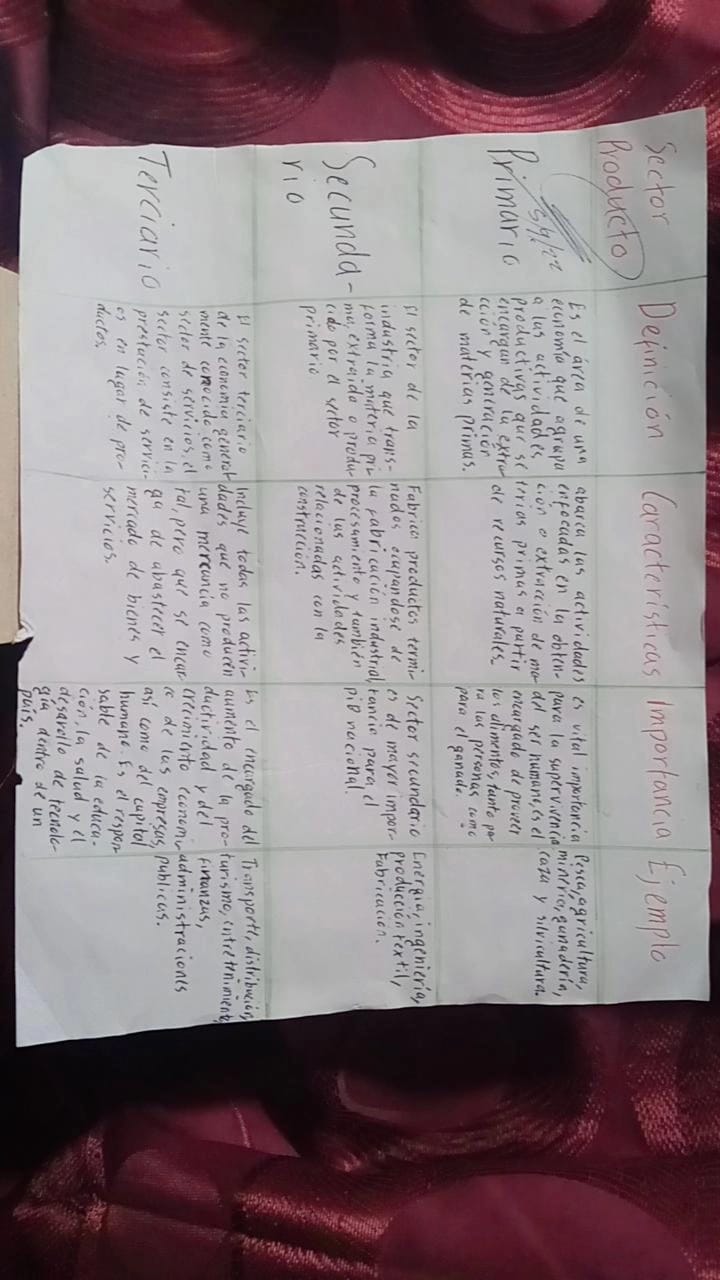 Sector
Producto
Definición
Características
Importancia
Ejemplo
5/9/22
Primario
Es el área de una
economía que agrupa
a las actividades
productivas que se
encargan de la extra
cción y generación
de materias primas.
abarca las actividades
enfocadas en la obten-
ción o extracción de ma
terias primas a partir
de recursos naturales.
es vital importancia
para la supervivencia
del ser humano, es el
encargado de proveer
los alimentos, tanto pa
ra las personas como
para el ganado.
Pesca, agricultura,
minería, ganadería,
caza y silvicultura.
Secunda-
rio
El sector de la
industria que trans-
forma la materia pri
ma, extraida o produ
cida por el sector
primario
Fabrica productos termi
nados ocupándose de
la fabricación industrial,
procesamiento y también
de las actividades
relacionadas con la
construcción.
Sector secundario
es de mayor impor-
tancia para el
PIB nacional.
Energía, ingeniería,
producción textil,
Fabricación.
Terciario
El sector terciario
de la economía general
mente conocido como
sector de servicios, el
sector consiste en la
prestación de servici-
os en lugar de pro-
ductos.
Incluye todas las activi-
dades que no producen
una mercancía como
tal, pero que se encar
ga de abastecer el
mercado de bienes y
servicios.
Es el encargado del
aumento de la pro-
ductividad y del
crecimiento económi
co de las empresas,
así como del capital
humano. Es el respon
sable de la educa-
ción, la salud y el
desarollo de tecnolo-
gía dentro de un
país.
Transporte, distribución,
turismo, entretenimiento,
finanzas,
administraciones
publicas.